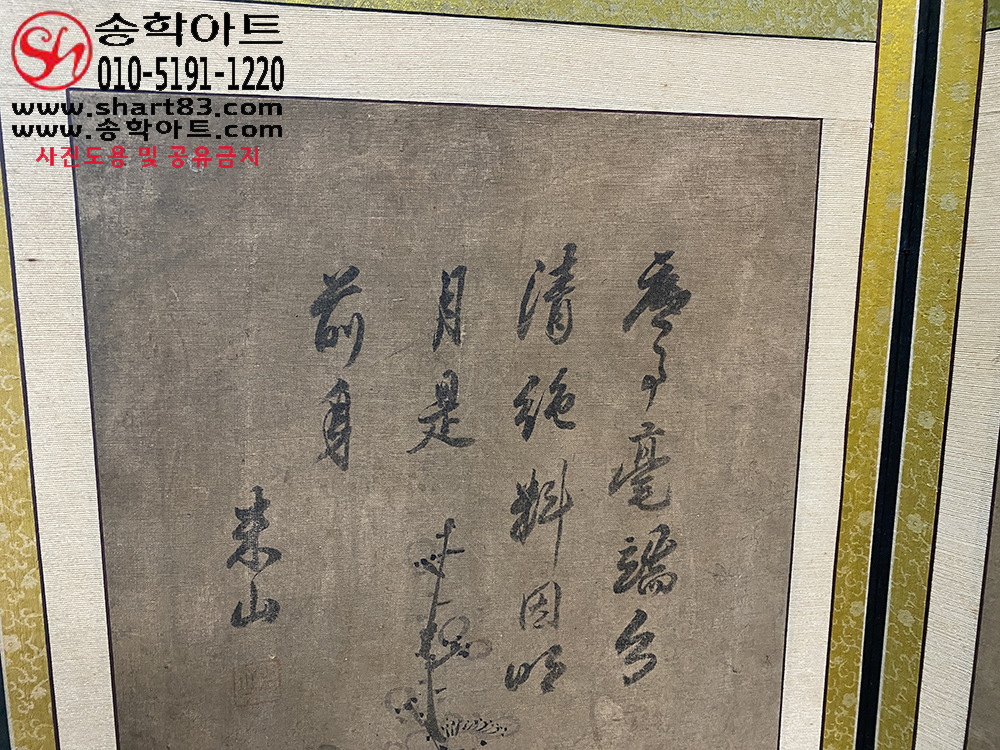 Sh 송학아트
010-5191-1220
www.shart83.com
www.송학아트.com
사진도용 및 공유금지
底事毫端
清絶料因明
月是
前身
朱山